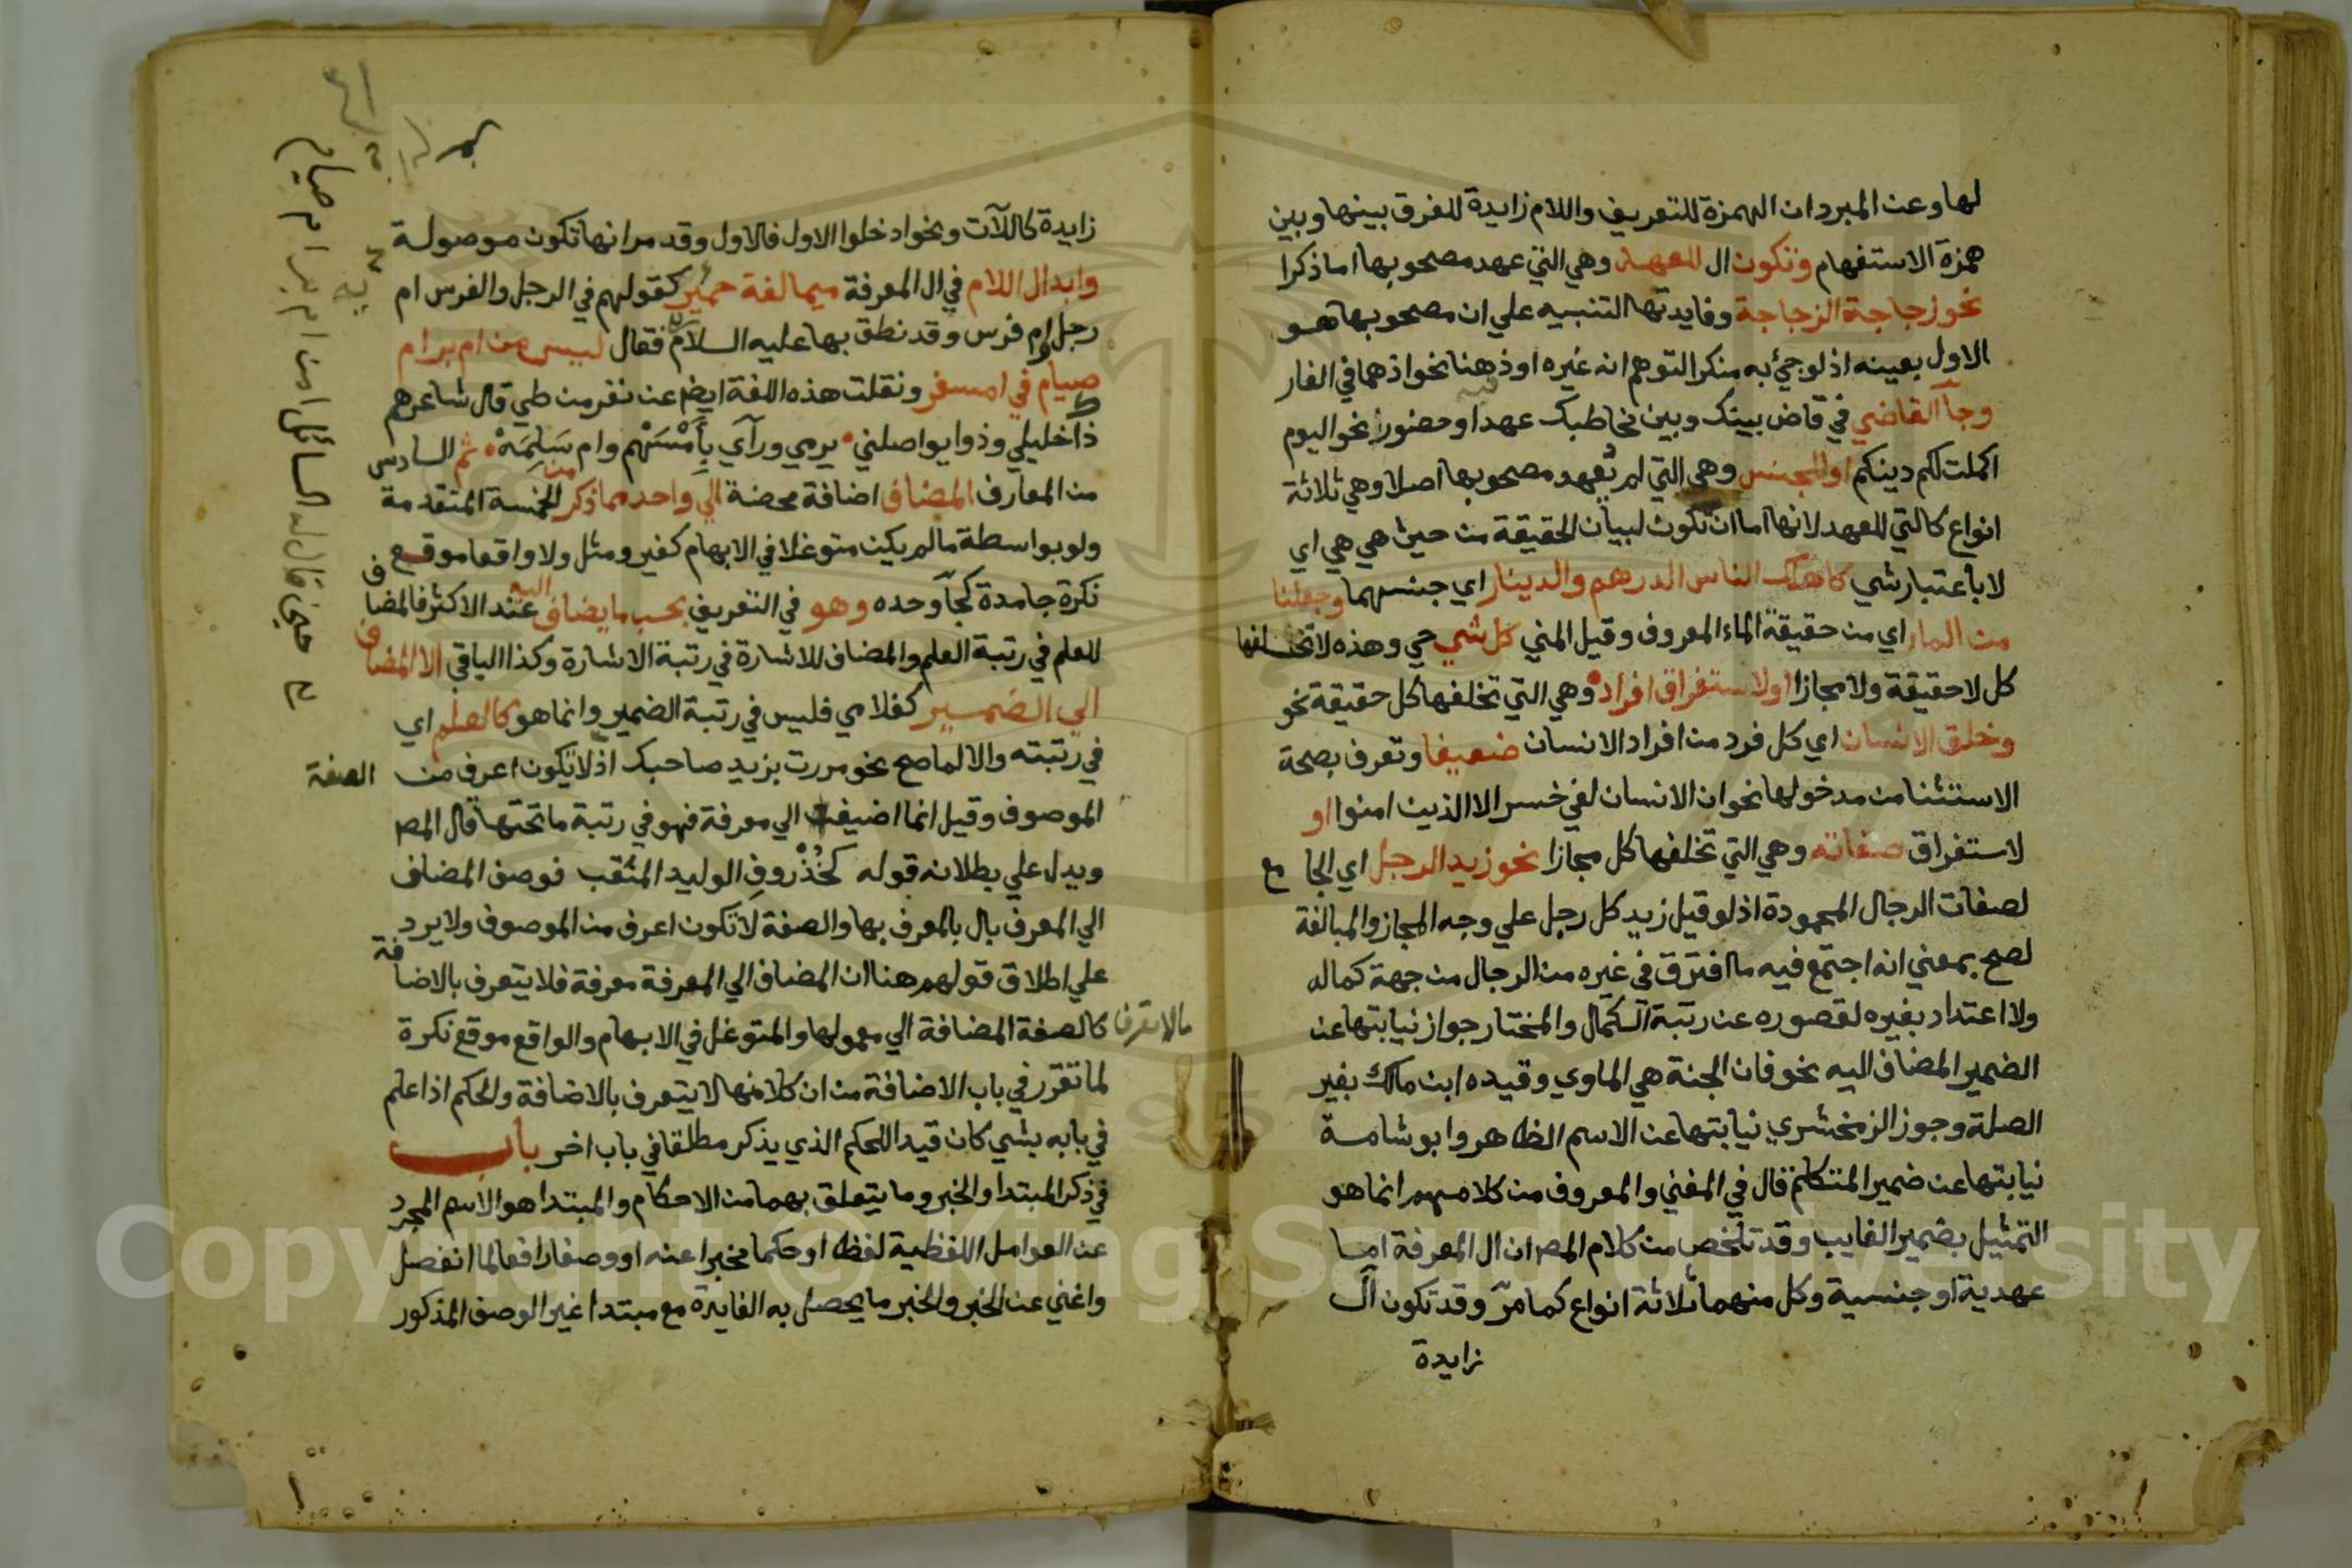 لها وعن المبرد ان الهمزة للتعريف واللام زايدة للفرق بينها وبين
همزة الاستفهام وتكون ال للعهد وهي التي عهد مصحوبها اما ذكرا
نحو زجاجة الزجاجة وفايدتها التنبيه علي ان مصحوبها هو
الاول بعينه اذ لو جيء به منكرا لتوهم انه غيره او ذهنا نحو اذ هما في الغار
وجآ القاضي في قاض بينك وبين مخاطبك عهد او حضورا نحو اليوم
اكملت لكم دينكم او للجنس وهي التي لم تعهد مصحوبها اصلا وهي ثلاثة
انواع كالتي للعهد لانها اما ان تكون لبيان الحقيقة من حيث هي هي اي
لا باعتبار شي كاهلك الناس الدرهم والدينار اي جنسهما وجعلنا
من الماء اي من حقيقة الماء المعروف وقيل المني كل شي حي وهذه لا تخلفها
كل لا حقيقة ولا مجازا او لاستغراق افراده وهي التي تخلفها كل حقيقة نحو
وخلق الانسان اي كل فرد من افراد الانسان ضعيفا وتعرف بصحة
الاستثنا من مدخولها نحو ان الانسان لفي خسر الا الذين امنوا او
لاستغراق صفاته وهي التي تخلفها كل مجازا نحو زيد الرجل اي الجامع
لصفات الرجال المحمودة اذ لو قيل زيد كل رجل علي وجه المجاز والمبالغة
لصح بمعني انه اجتمع فيه ما افترق في غيره من الرجال من جهة كماله
ولا اعتداد بغيره لقصوره عن رتبة الكمال والمختار جواز نيابتها عن
الضمير المضاف اليه نحو فان الجنة هي الماوي وقيده ابن مالك بغير
الصلة وجوز الزمخشري نيابتها عن الاسم الظاهر وابو شامة
نيابتها عن ضمير المتكلم قال في المغني والمعروف من كلامهم انما هو
التمثيل بضمير الغايب وقد تلخص من كلام المص ان ال المعرفة اما
عهدية او جنسية وكل منهما ثلاثة انواع كما مر وقد تكون ال
زايدة
زايدة كاللآت ونحو ادخلوا الاول فالاول وقد مر انها تكون موصولة
وابدال اللام في ال المعرفة ميما لغة حمير كقولهم في الرجل والفرس ام
رجل وام فرس وقد نطق بها عليه السلام فقال ليس من ام بر ام
صيام في امسفر ونقلت هذه اللغة ايض عن نفر من طي قال شاعرهم
ذا خليلي وذو يواصلني يرمي ورآي بامسهم وام سلمه ثم السادس
من المعارف المضاف اضافة محضة الي واحد مما ذكر من الخمسة المتقدمة
ولو بواسطة ما لم يكن متوغلا في الابهام كغير ومثل ولا واقعا موقع
نكرة جامدة كجآ وحده وهو في التعريف بحسب ما يضاف اليه عند الاكثر فالمضاف
للعلم في رتبة العلم والمضاف للاشارة في رتبة الاشارة وكذا الباقي الا المضاف
الي الضمير كغلامي فليس في رتبة الضمير وانما هو كالعلم اي
في رتبته والا لما صح نحو مررت بزيد صاحبك اذ لا تكون اعرف من
الصفة
الموصوف وقيل انما اضيف الي معرفة فهو في رتبة ما تحتها قال المص
ويدل علي بطلانه قوله كخذروف الوليد المثقب فوصف المضاف
الي المعرف بال بالمعرف بها والصفة لا تكون اعرف من الموصوف ولا يرد
علي اطلاق قولهم هنا ان المضاف الي المعرفة معرفة فلا يتعرف بالاضافة
كالصفة المضافة الي معمولها والمتوغل في الابهام والواقع موقع نكرة
لما تقرر في باب الاضافة من ان كلا منها لا يتعرف بالاضافة والحكم اذا علم
في بابه بشي كان قيدا للحكم الذي يذكر مطلقا في باب اخر باب
في ذكر المبتدا والخبر وما يتعلق بهما من الاحكام والمبتدا هو الاسم المجرد
عن العوامل اللفظية لفظا او حكما مخبرا عنه او وصفا رافعا لما انفصل
واغني عن الخبر والخبر ما يحصل به الفايدة مع مبتدا غير الوصف المذكور
حين قال له السائل امن ام بر ام صيام
Copyright © King Saud University